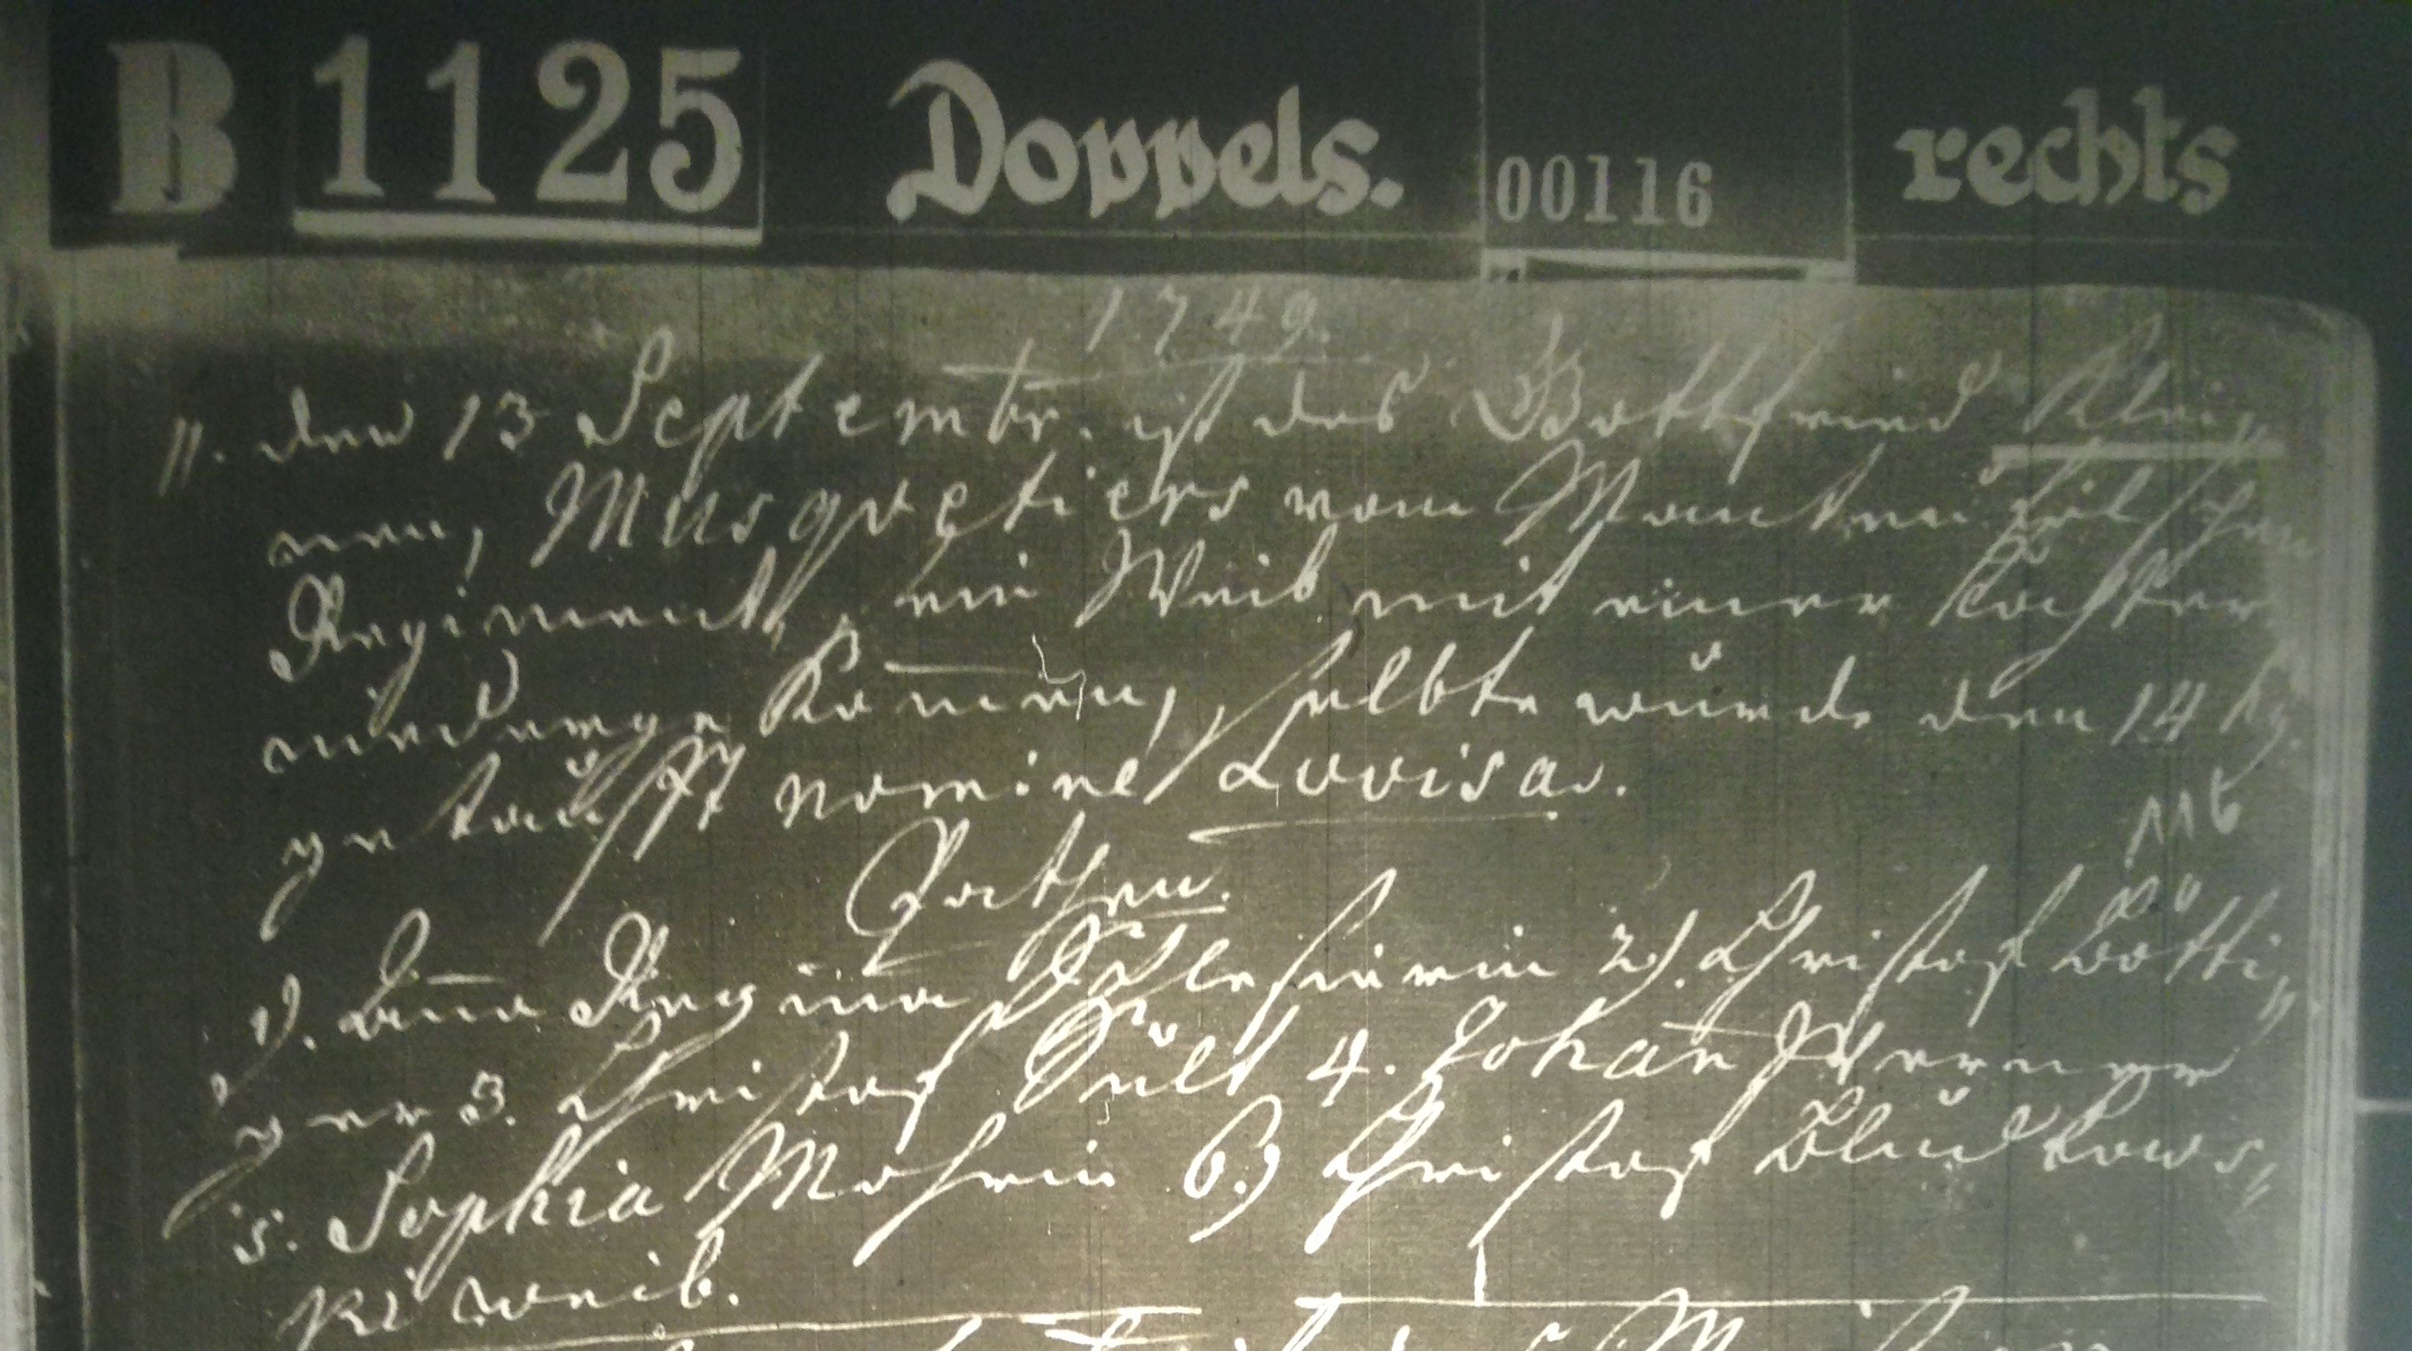 B 1125 Doppels. 00116 rechts
1749.
11. den 13 Septembr. ist des Gottfried Klei„
nen, Musqvetiers vom Manteufelschen
Regiment, ein Weib mit einer Tochter
niedergekom̅en, selbte wurde den 14
getaufft nomine Lovisa.
116
Pathen.
1). An̅a Regina 2). Christof Bötti„
ger 3. Christof 4. Johan̅ Werner
5. Sophia Mohrin 6.) Christof Bludkows„
ki weib.